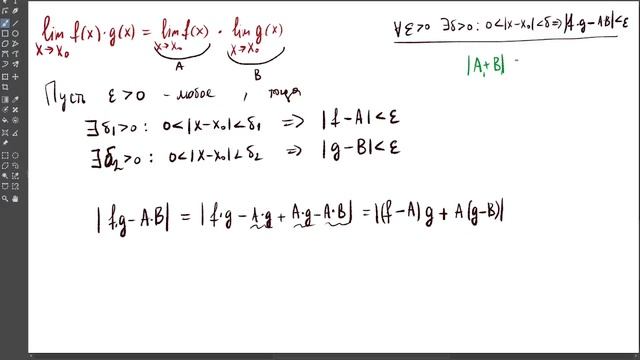 lim f(x)·g(x) = lim f(x) · lim g(x)
x→x₀ x→x₀ x→x₀
A B
∀ε>0 ∃δ>0: 0<|x-x₀|<δ ⇒ |f·g-AB|<ε
|A₁+B|
Пусть ε>0 - любое, тогда
∃δ₁>0: 0<|x-x₀|<δ₁ ⇒ |f-A|<ε
∃δ₂>0: 0<|x-x₀|<δ₂ ⇒ |g-B|<ε
|f·g-A·B| = |f·g-A·g+A·g-A·B| = |(f-A)g+A(g-B)|